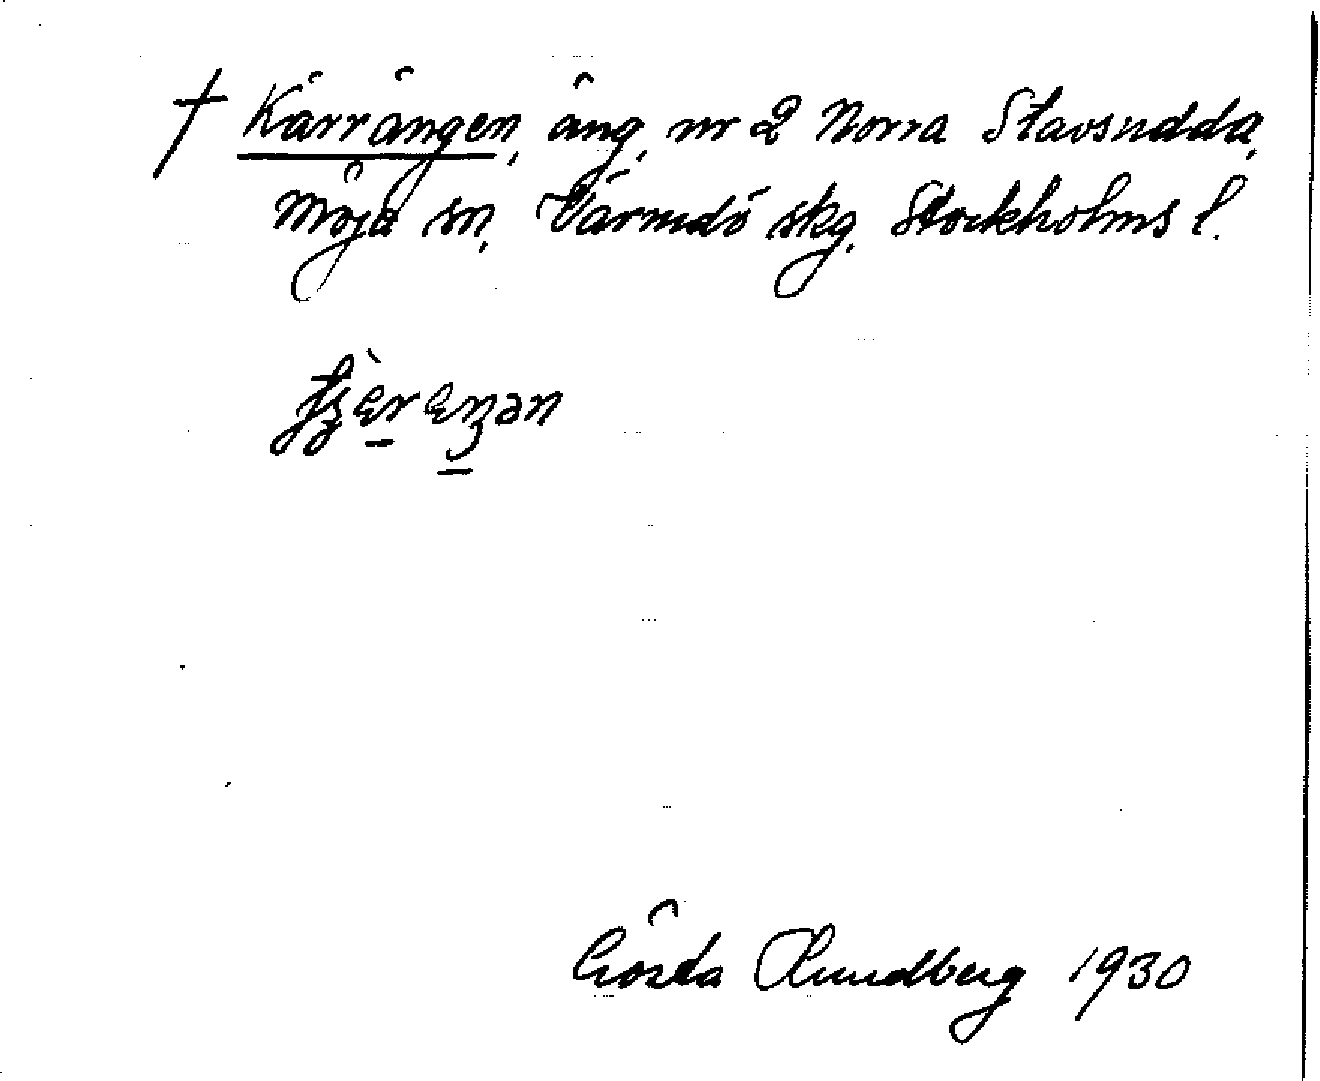 † Kärrängen, äng, nr 2 Norra Stavsudda,
Möja sn, Värmdö skg, Stockholms l.
Gösta Lundberg 1930